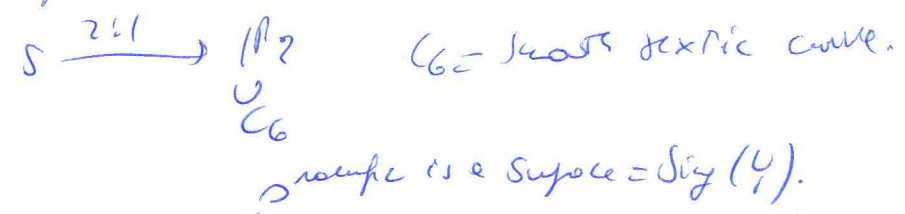 S 2:1 → P2 C6 = smooth sextic curve.
∪
C6
is a surface = Sing (